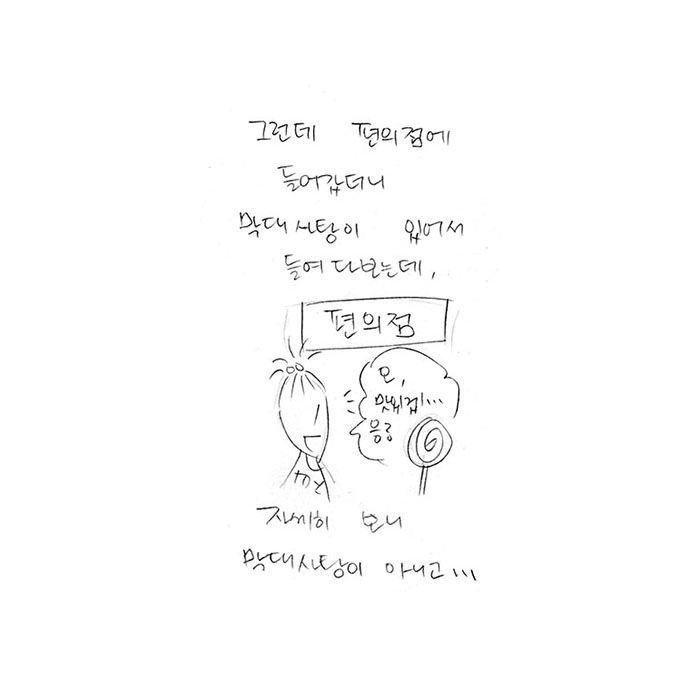 그런데 편의점에
들어갔더니
막대사탕이 있어서
들여다보는데,
편의점
오,
맛있겠…
응?
자세히 보니
막대사탕이 아니고...